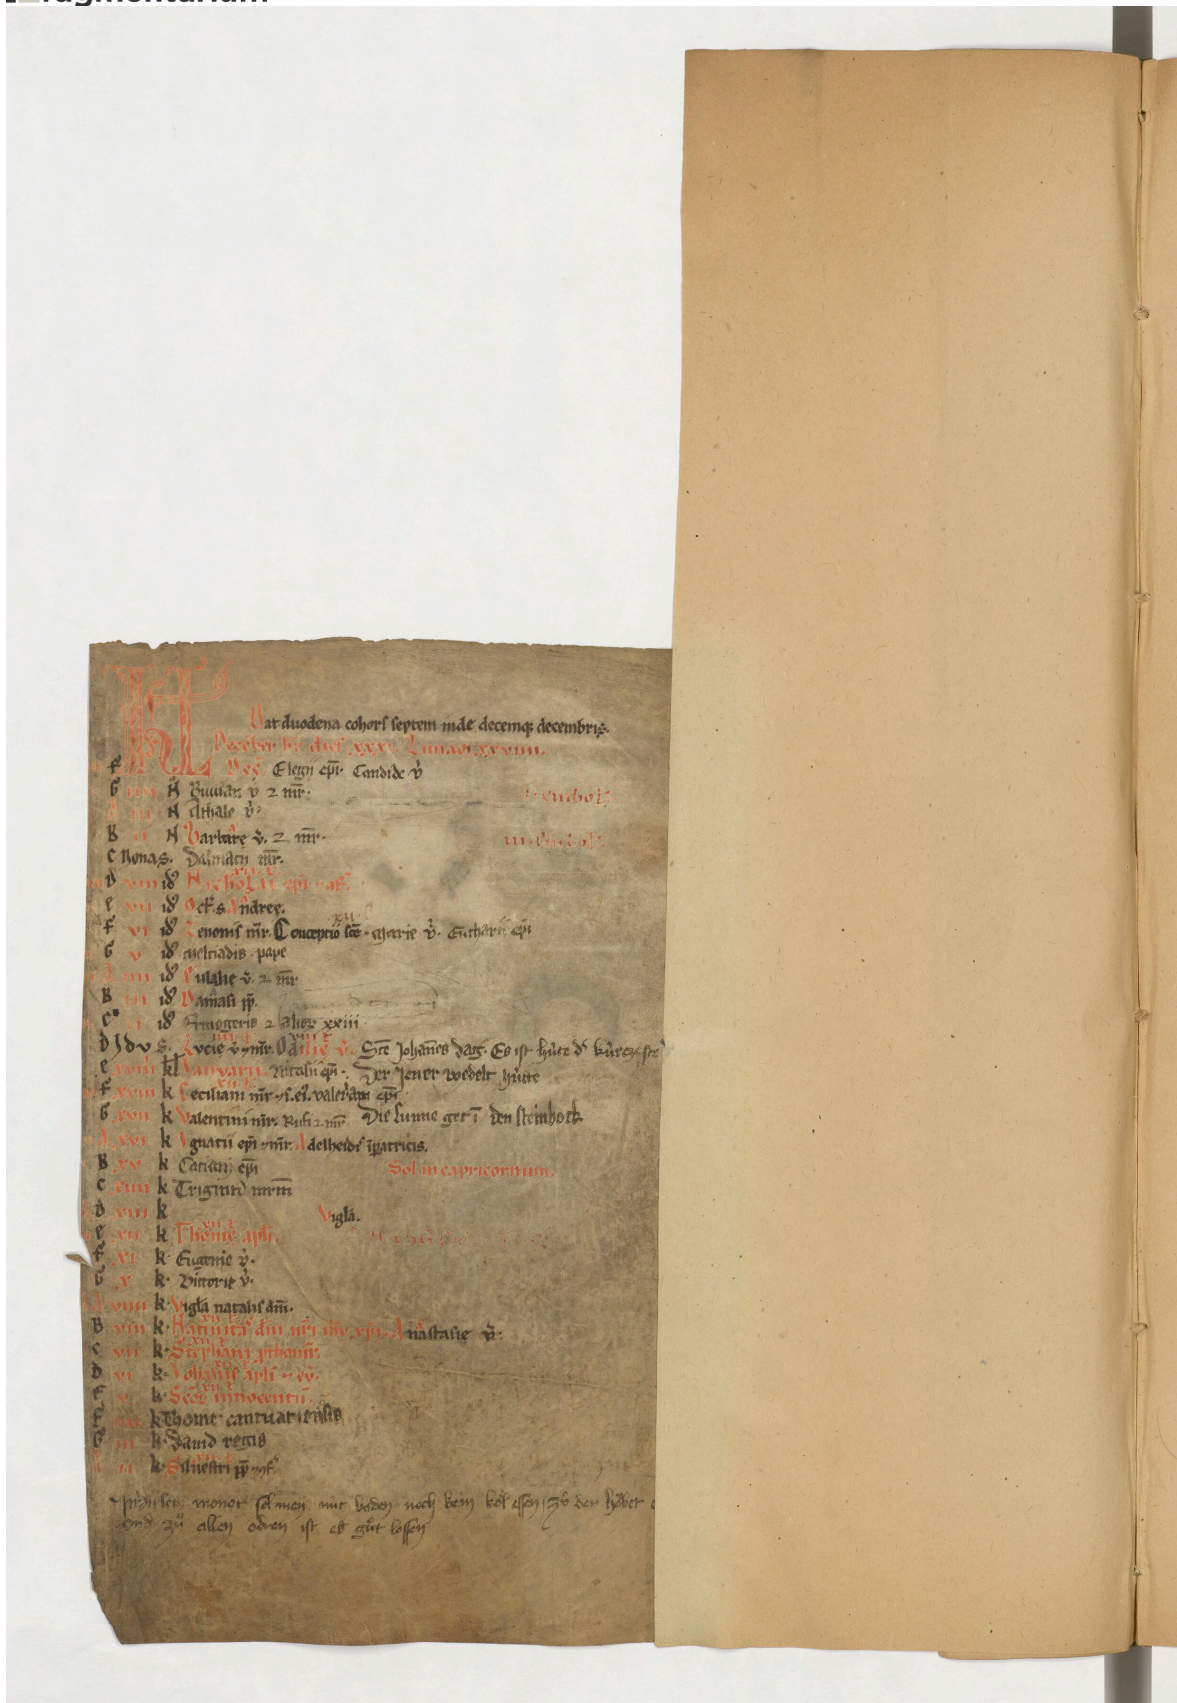 Fragmentarium
Dat duodena cohors septem inde decemq; decembris.
December dies xxxi Luna xxviiii.
F Dec. Elegii epi. Candide v̄
G N̄ v̄ ⁊ mr̄.
A iii N Athale v̄.
B N Barbare v̄. ⁊ mr̄.
C Nonas. Dalmacii mr̄.
D viii id Nicholai epi ⁊ 9f.
e vii id Oct̄. s Andree.
F vi id Zenonis mr̄. Concepcio sce. marie v̄. Eucharii epi
G v id Melciadis. pape
A iiii id Eulalie v̄. ⁊ mr̄
B iii id Damasi pp.
C ii id ⁊ alior xxiii
D Idus. Lucie v̄ ⁊ mr̄. Odilie v̄. Scē Johānes dag. Es ist hute d̓ kurczeste
e xviiii kl Januarii. Nicasii epi. Der Jener wedelt hute
F xviii k mr̄ epi
G xvii k Valentini mr̄. Rufi ⁊ mr̄ Die sunne get ī den steinbock
A xvi k Ignatii epi ⁊ mr̄. Adelheidis īpatricis.
B xv k epi Sol in capricornum.
C xiiii k Triginta mr̄m
D xiii k Vigla.
e xii k Thome apli.
F xi k Eugenie v̄.
G x k Victorie v̄.
A viiii k Vigla natalis dm̄.
B viii k Nativitas dni nri ihu xpi. Anastasie v̄.
C vii k Stephani pthomr̄.
D vi k Johannis apli ⁊ ev̄.
e v k Scōr innocentū.
F k Thome cantuariensis
G iii k David regis
A ii k Silvestri pp ⁊ 9f.
monot sol men nut baden noch kein kol essen zu der
und zu allen odren ist es gut lossen